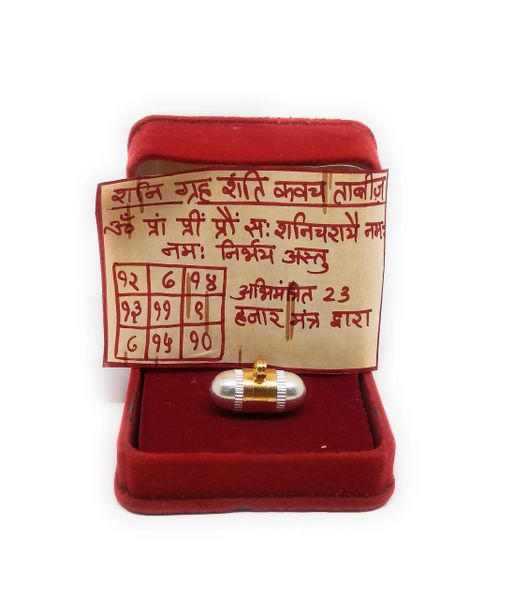 शनि ग्रह शांति कवच ताबीज़
ॐ प्रां प्रीं प्रौं सः शनिचरायै नमः
नमः निर्भय अस्तु
१२ ७ १४
१३ ११ ९
८ १५ १०
अभिमंत्रित 23
हजार मंत्र द्वारा